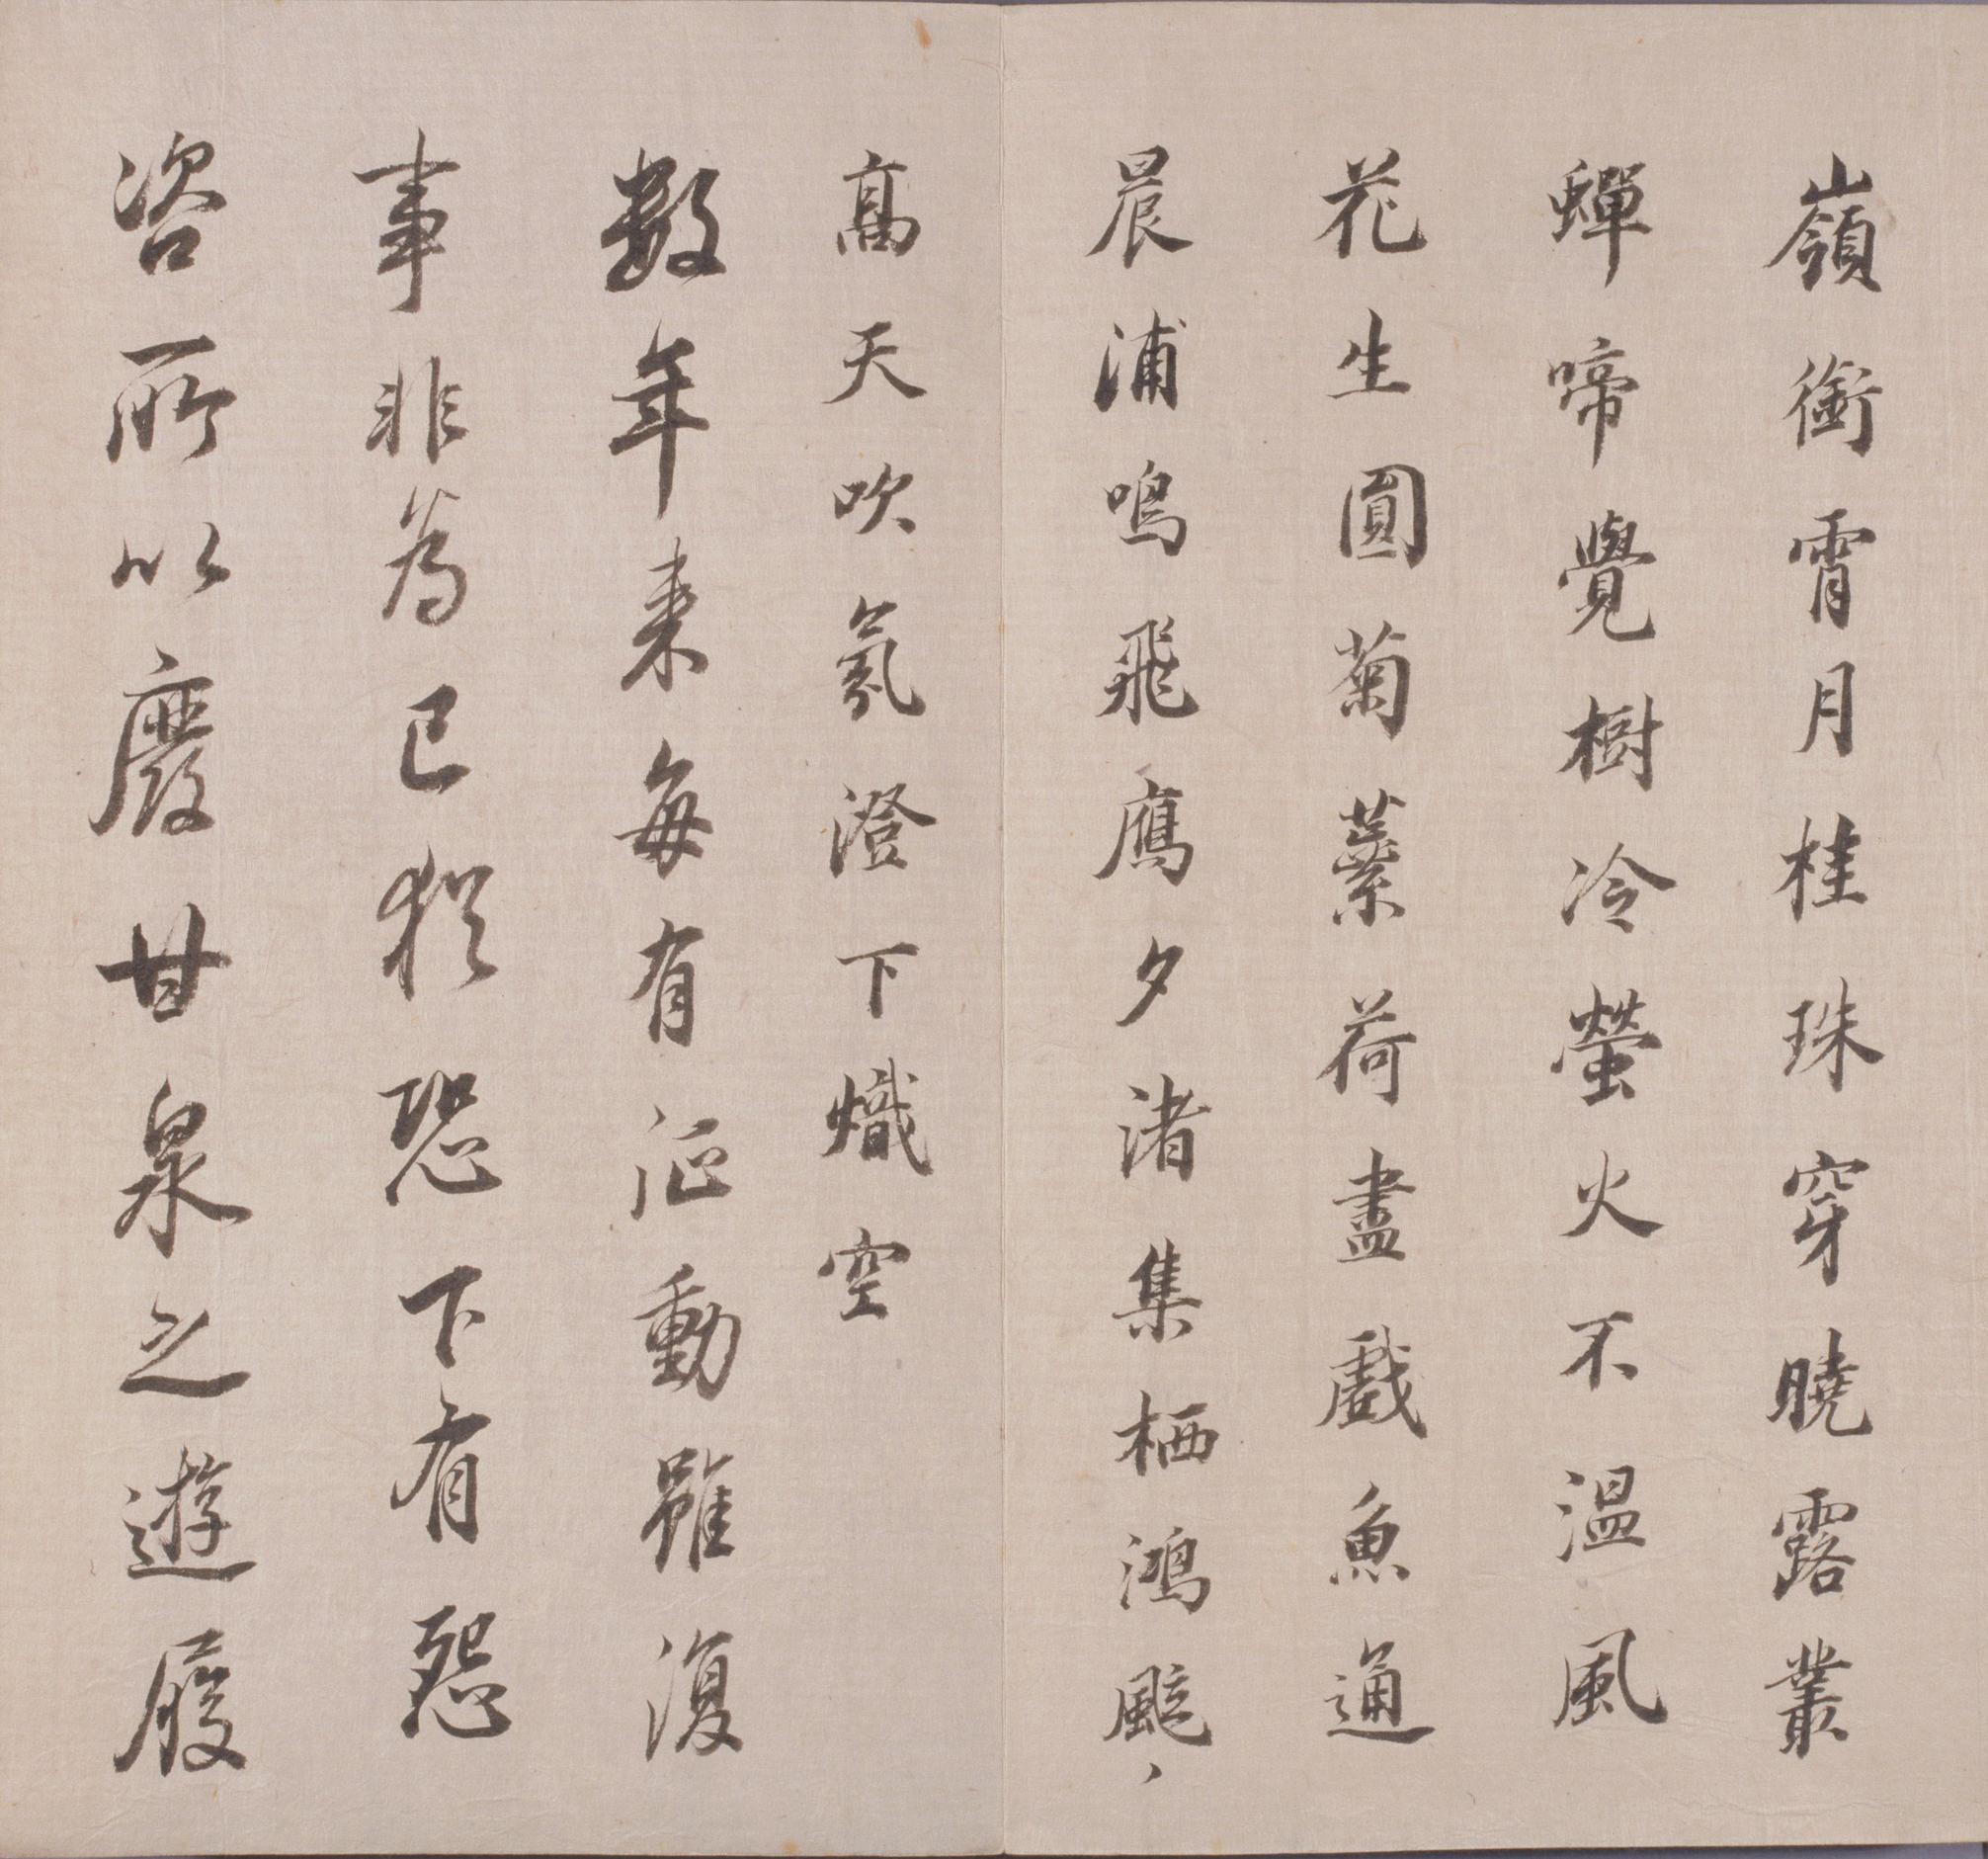 嶺銜霄月桂珠穿曉露叢
蟬啼覺樹冷螢火不溫風
花生圓菊蘂荷盡戲魚通
晨浦鳴飛鴈夕渚集栖鴻颸〻
高天吹氛澄下熾空
數年來每有征動雖復
事非為己猶恐下有怨
咨所以廢甘泉之遊履